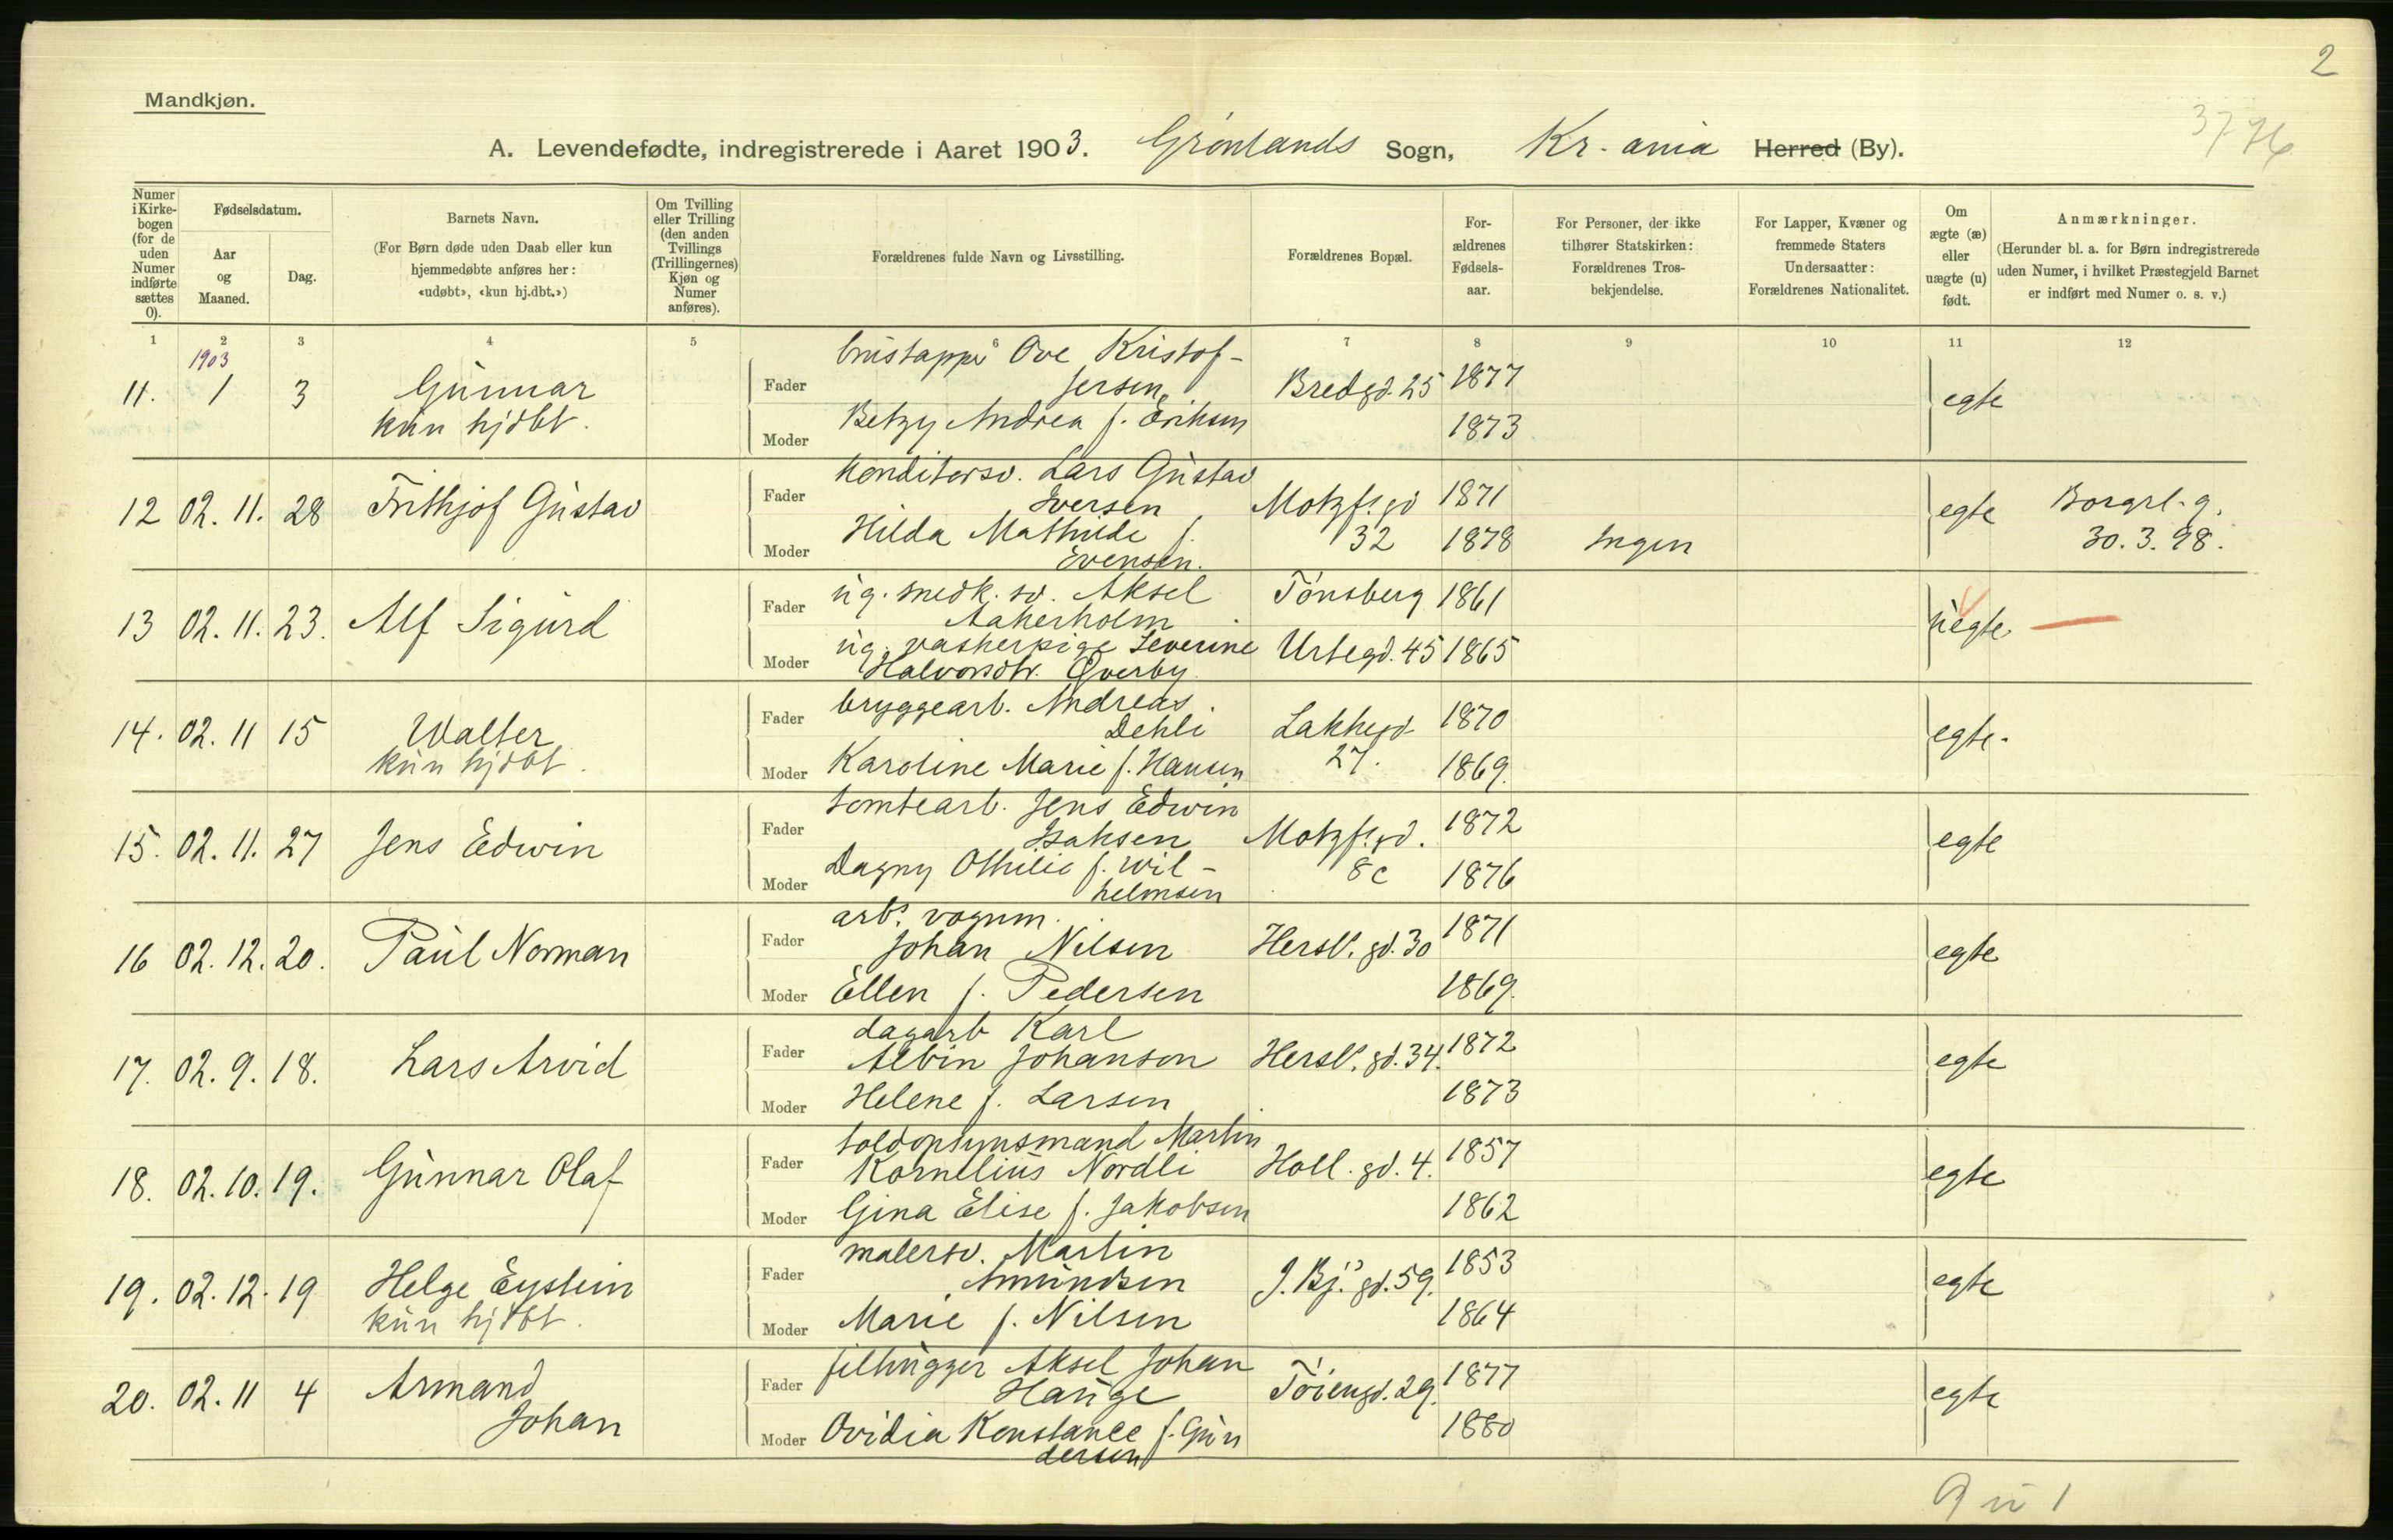 2
Mandkjøn.
3776
A. Levendefødte, indregistrerede i Aaret 1903. Grønlands Sogn, Kr-ania Herred (By).
Numer i Kirke-bogen (for de uden Numer indførte sættes 0).
Fødselsdatum.
Aar og Maaned.
Dag.
Barnets Navn.
(For Børn døde uden Daab eller kun hjemmedøbte anføres her: «udøbt», «kun hj.dbt.»)
Om Tvilling eller Trilling (den anden Tvillings (Trillingernes) Kjøn og Numer anføres).
Forældrenes fulde Navn og Livsstilling.
Forældrenes Bopæl.
For-ældrenes Fødsels-aar.
For Personer, der ikke tilhører Statskirken: Forældrenes Tros-bekjendelse.
For Lapper, Kvæner og fremmede Staters Undersaatter: Forældrenes Nationalitet.
Om ægte (æ) eller uægte (u) født.
Anmærkninger.
(Herunder bl. a. for Børn indregistrerede uden Numer, i hvilket Præstegjeld Barnet er indført med Numer o. s. v.)
1 2 3 4 5 6 7 8 9 10 11 12
1903
11. 1 3 Gunnar
kun hjdbt.
Fader Ove Kristof-
fersen Bredgd. 25 1877 egte
Moder Betzy Andrea f. Eriksen 1873
12 02. 11. 28 Frithjof Gustav
Fader konditorsv. Lars Gustav
Iversen Motzf. gd 1871 egte Borgrl. g.
Moder Hilda Mathilde f. 32 1878 Ingen 30. 3. 98.
Evensen.
13 02. 11. 23. Alf Sigurd
Fader ug. snedk. sv. Aksel Tønsberg 1861
Aakerholm uegte
Moder ug. vaskerpige Severine Urtegd. 45 1865
Halvorsdtr. Øverby
14. 02. 11 15 Walter
kun hjdbt.
Fader bryggearb. Andreas
Dehli Lakkegd 1870 egte.
Moder Karoline Marie f. Hansen 27. 1869.
15. 02. 11. 27 Jens Edwin
Fader tomtearb. Jens Edwin
Isaksen Motzf. gd. 1872 egte
Moder Dagny Othilie f. Wil- 8c 1876
helmsen
16 02. 12. 20. Paul Norman
Fader arb. vognm.
Johan Nilsen Hersl. gd. 30 1871 egte
Moder Ellen f. Pedersen 1869.
17. 02. 9. 18. Lars Arvid
Fader dagarb Karl
Albin Johanson Hersl. gd. 34. 1872 egte
Moder Helene f. Larsen 1873
18. 02. 10. 19. Gunnar Olaf
Fader toldopsynsmand Martin
Kornelius Nordli Holl. gd. 4. 1857 egte
Moder Gina Elise f. Jakobsen 1862
19. 02. 12. 19 Helge Eystein
kun hjdbt.
Fader malersv. Martin
Amundsen J. Bj. gd. 59. 1853 egte
Moder Marie f. Nilsen 1864
20. 02. 11 4 Armand
Johan
Fader filhugger Aksel Johan
Hauge Tøiengd. 29. 1877 egte
Moder Ovidia Konstance f. Gun
dersen 1880
9 u 1